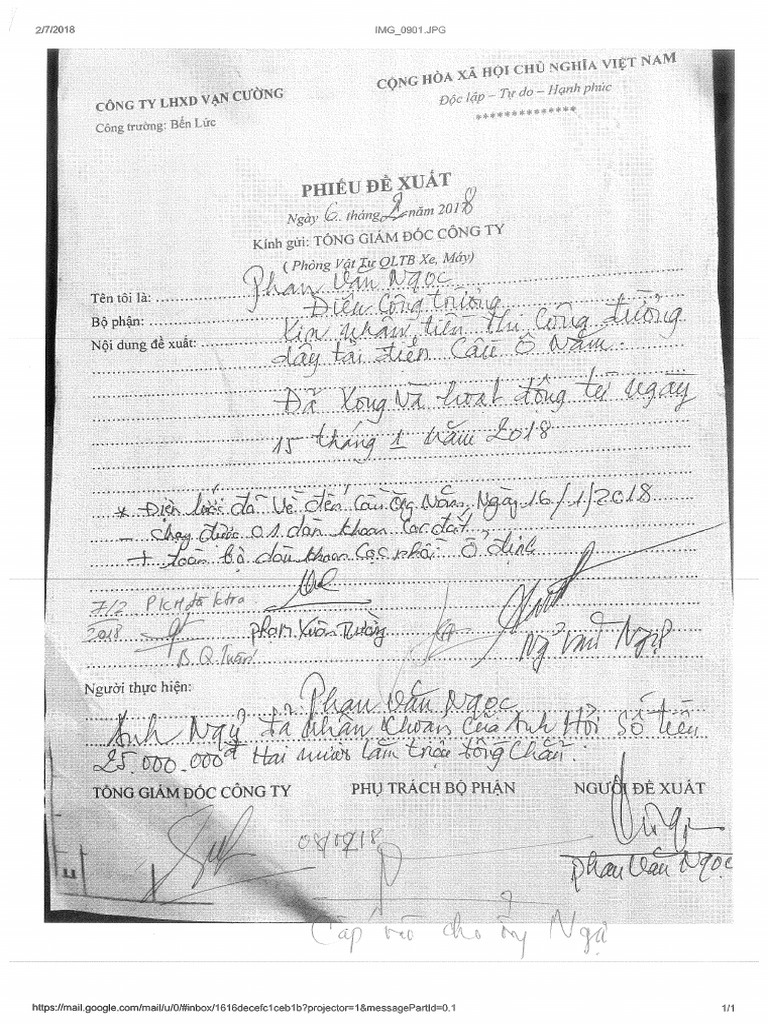 2/7/2018
IMG_0901.JPG
CÔNG TY LHXD VẠN CƯỜNG
CỘNG HÒA XÃ HỘI CHỦ NGHĨA VIỆT NAM
Công trường: Bến Lức
Độc lập – Tự do – Hạnh phúc
**************
PHIẾU ĐỀ XUẤT
Ngày 6 tháng 2 năm 2018
Kính gửi: TỔNG GIÁM ĐỐC CÔNG TY
( Phòng Vật Tư QLTB Xe, Máy)
Tên tôi là: Phan Văn Ngọc
Bộ phận: Điện Công Trường
Nội dung đề xuất: Xin nhận tiền thi Công đường
dây tải điện Cầu Ô Năm.
Đã Xong Và hoạt động từ ngày
15 tháng 1 năm 2018
* Điện lưới đã về đến Cầu Ông Năm, Ngày 16/1/2018
- chạy được 01 dàn khoan cọc đất
+ toàn bộ dàn khoan cọc nhồi ổ định
7/2 PKH đã ktra
2018
phạm Xuân Trường
B.Q.Tuấn
Người thực hiện: Phan Văn Ngọc
Anh Ngọ đã nhận khoán của Anh Hồi Số tiền
25.000.000đ Hai mươi lăm triệu đồng Chẵn.
TỔNG GIÁM ĐỐC CÔNG TY
PHỤ TRÁCH BỘ PHẬN
NGƯỜI ĐỀ XUẤT
08/02/18
phan Văn Ngọc
cho ông Ngọ
https://mail.google.com/mail/u/0/#inbox/1616decefc1ceb1b?projector=1&messagePartId=0.1
1/1